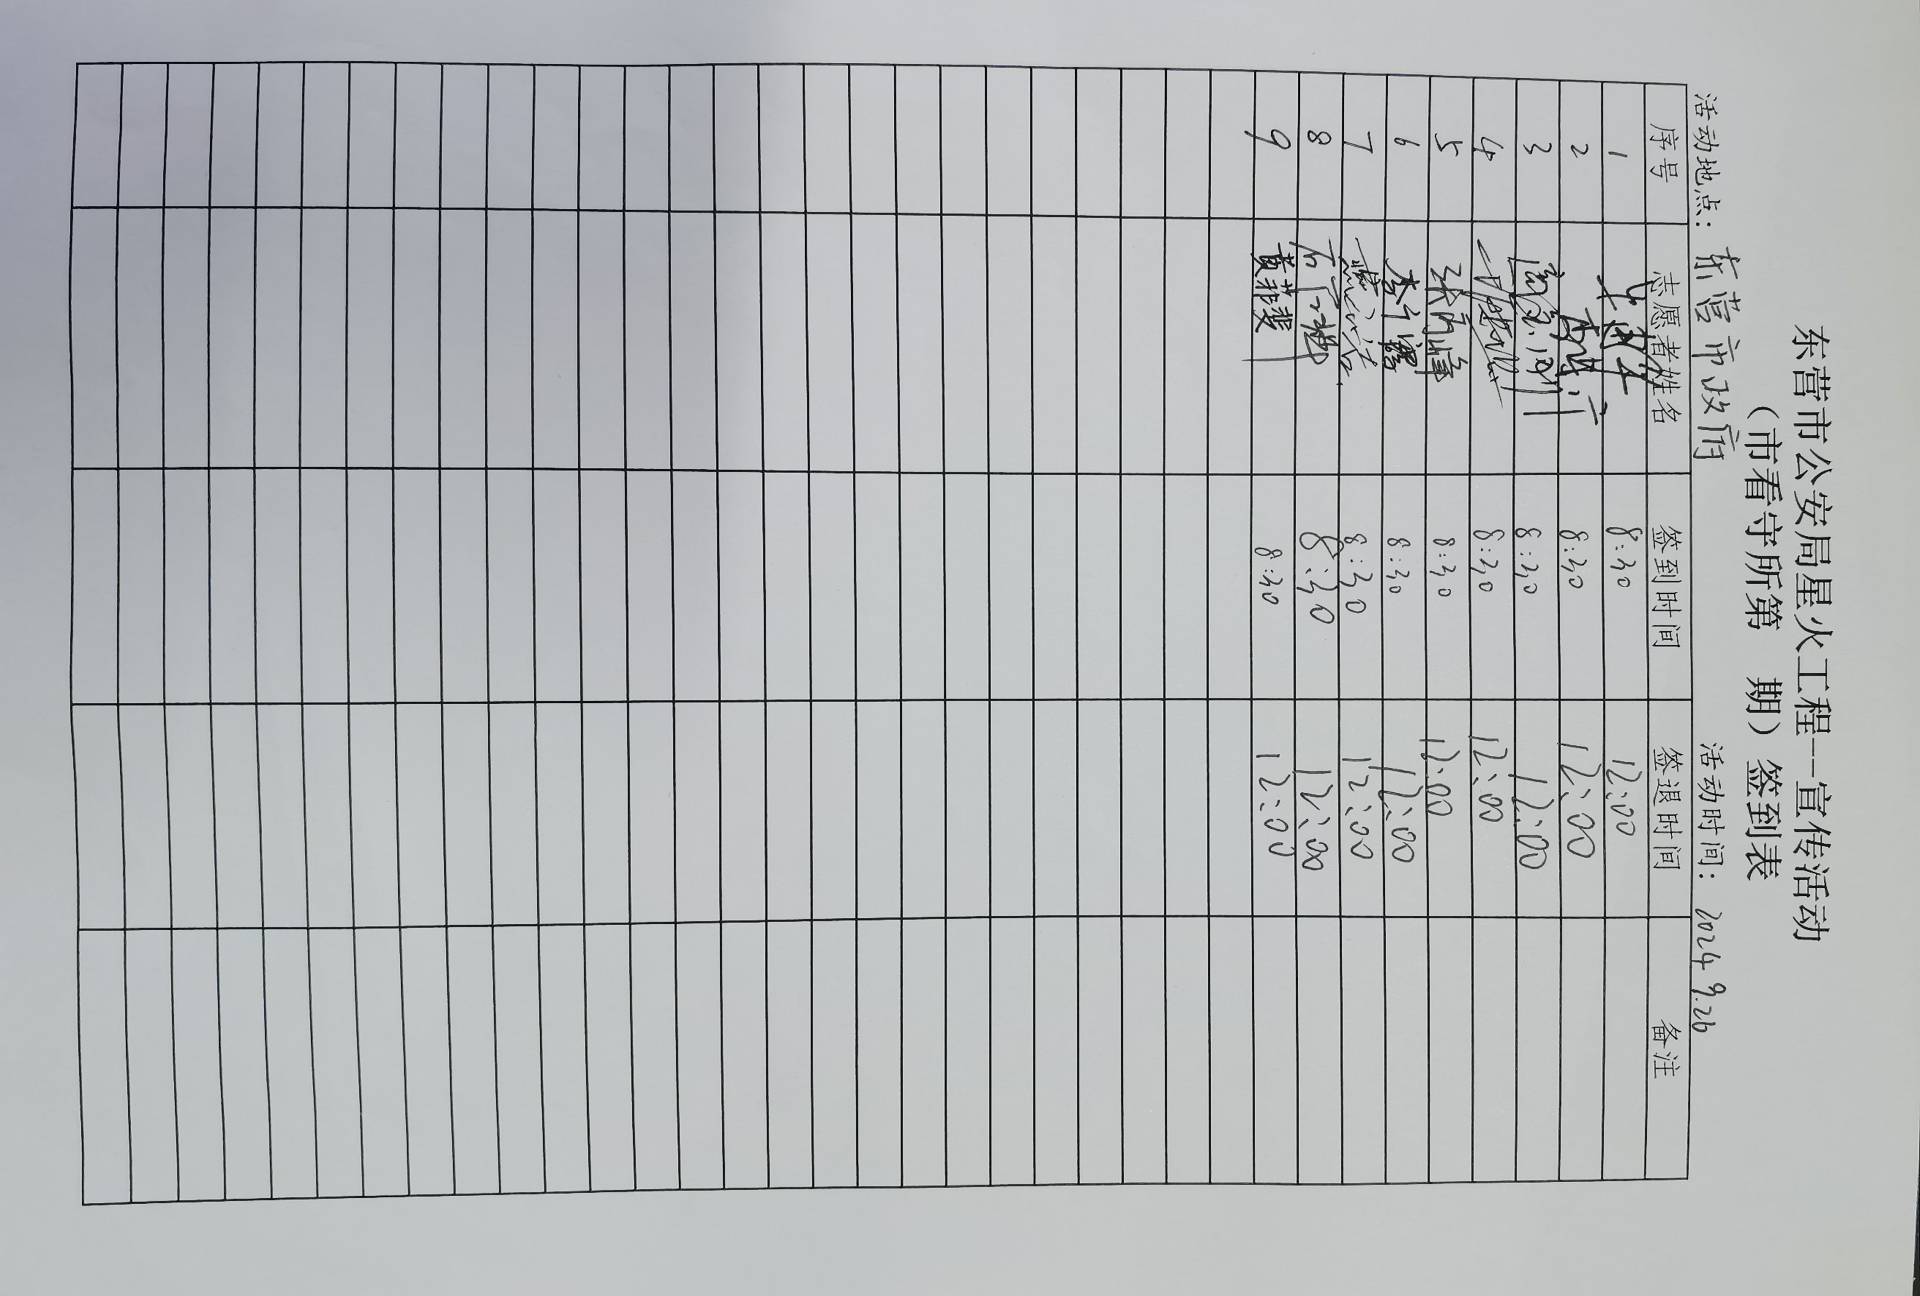 东营市公安局星火工程--宣传活动
（市看守所第 期）签到表
活动地点：东营市政府 活动时间：2024 9.26
序号 志愿者姓名 签到时间 签退时间 备注
1 8:30 12:00
2 8:30 12:00
3 8:30 12:00
4 8:30 12:00
5 8:30 12:00
6 8:30 12:00
7 8:30 12:00
8 8:30 12:00
9 黄菲斐 8:30 12:00